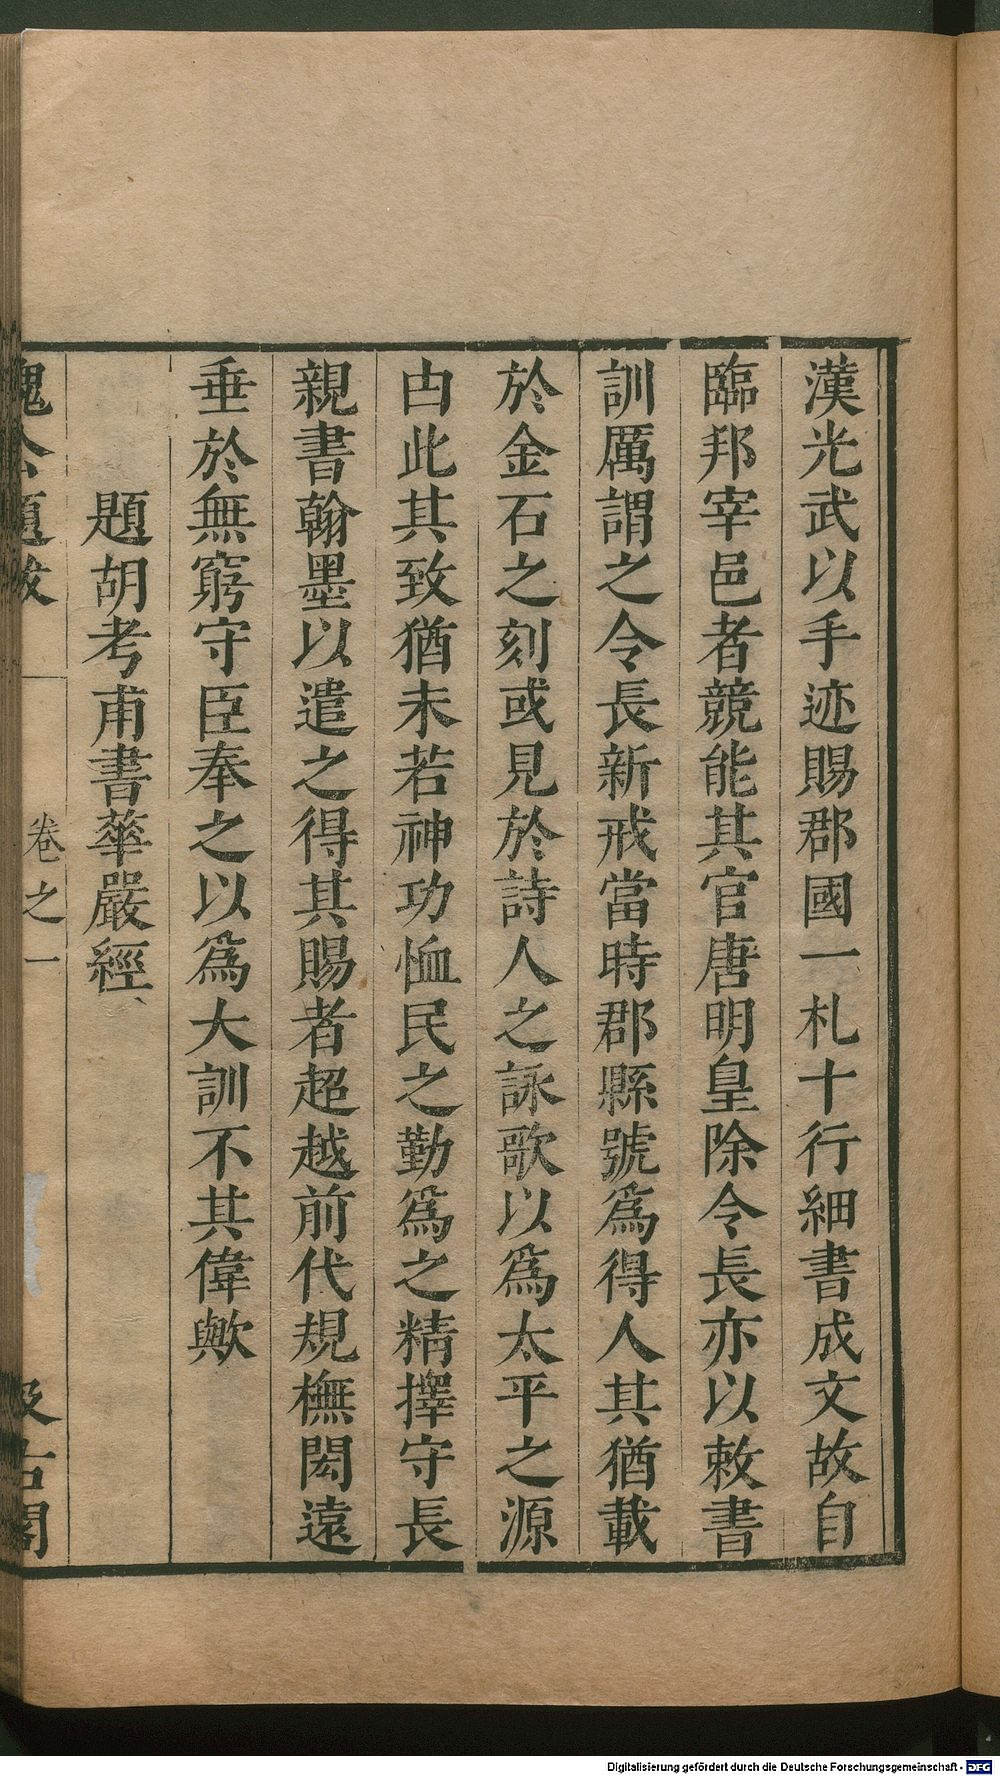 漢光武以手迹賜郡國一札十行細書成文故自
臨邦宰邑者競能其官唐明皇除令長亦以敕書
訓厲謂之令長新戒當時郡縣號為得人其猶載
於金石之刻或見於詩人之詠歌以為太平之源
由此其致猶未若神功恤民之勤為之精擇守長
親書翰墨以遣之得其賜者超越前代規橅閎遠
垂於無窮守臣奉之以為大訓不其偉歟
題胡考甫書華嚴經
魏公題跋 卷之一 汲古閣
Digitalisierung gefördert durch die Deutsche Forschungsgemeinschaft - DFG